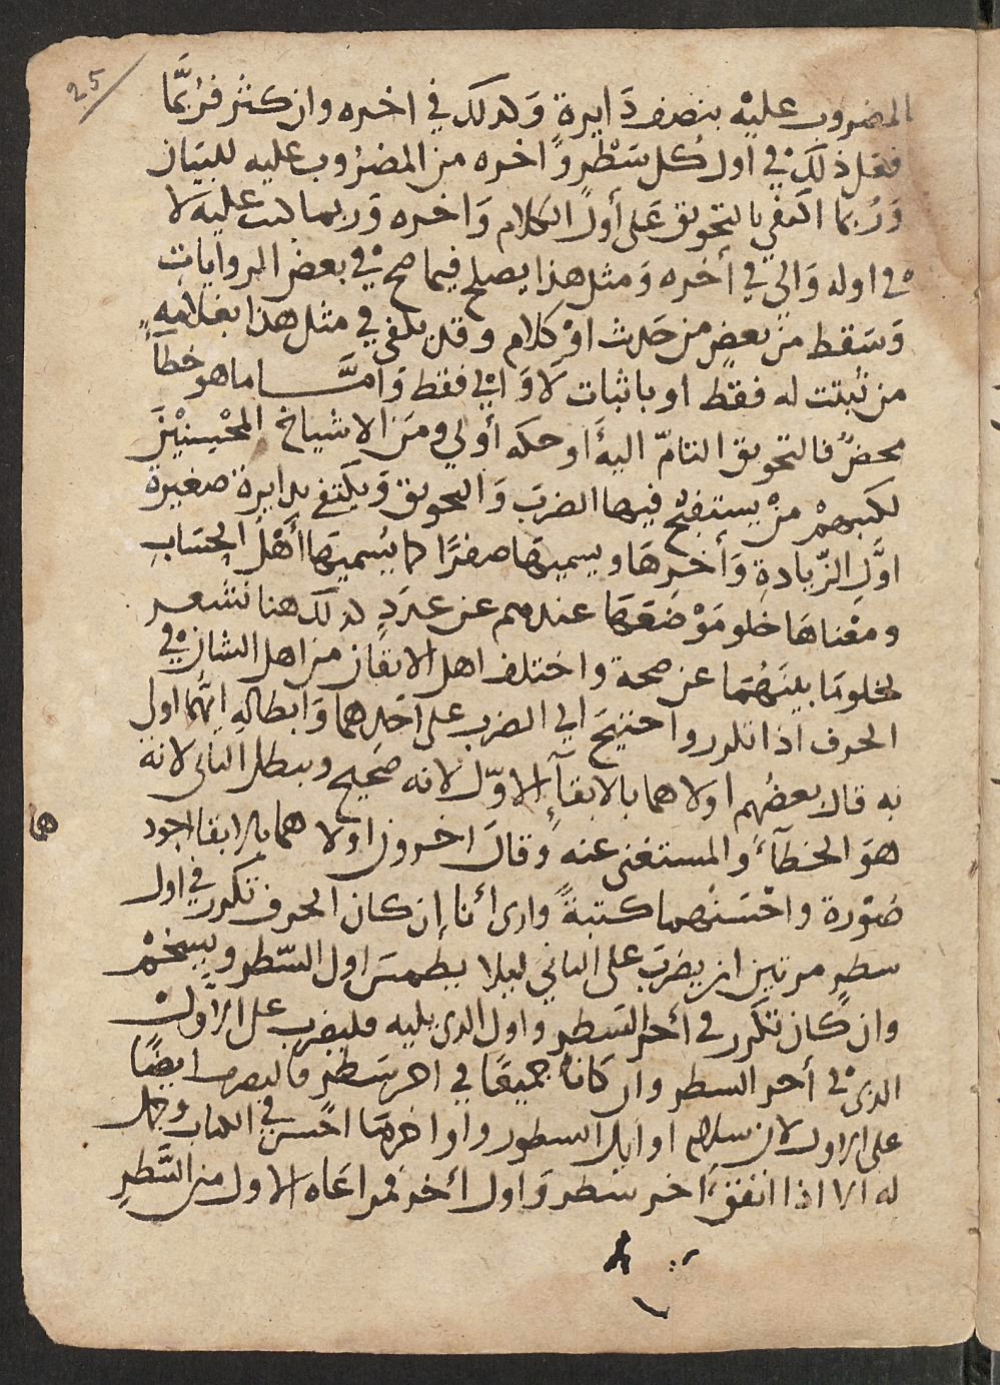 25
المضروب عليه بنصف دَايرةٍ وَكذلك في اخره وان كثر فرُبَّما
فعل ذلك في أول كل سَطْرٍ وَاخره من المضرُوب عليه للبيَان
وَرُبما اكتفي بالتحويق عَلى أول الكلام وَاخره وَربما كتب عليه لا
في اوله وَالي في أخره وَمثل هذا يصلح فيما صح في بعض الروايات
وَسَقط من بعضٍ من حَديث اوْ كلام وقد يكتفى في مثل هذا بعَلامةِ
من ثبتت له فقط او باثبات لَا وَ الي فقط وَامَّــا ما هو خطآً
محضٌ فالتحويق التامّ اليهَ او حكه أولي ومن الاشياخ المحْسنيْنَ
لكتبهمْ منْ يستقبحُ فيها الضربَ وَالتحويق وَيكتفى بدايرة صغيرة
اوَّل الزّيادةِ وَأخرهَا ويسميهَا صفرًا كما يُسميهَا أهْل الحِسَابِ
ومعْناهَا خلو مَوْضعهَا عندهم عن عدَدٍ كذلك هنا تشعر
بخلو مَا بينَهُمَا عن صحة واختلف اهل الاتقان من اهل الشان في
الحرف اذا تكرر واحتيجَ الي الضرب على احَدهما وَابطالهِ ايهُّما اول
به قال بعضُهم اولاهما بالابقآءِ الاوّل لانه صَحيح ويبطل الثانى لانه
هوَ الخطآءُ والمستغنى عنه وَقالَ اخرون اولاهما بالابقا اجود
هما
صُوْرة واحْسَنهما كتبةً وارى أنا إن كان الحرف تكرر في اول
سطرٍ مرتين ان يضربَ على الثاني ليلا يطمسَ اول السّطر ويسخمْ
وان كان تكرر في أخر السَطر واول الذى يليه فليضرب على الاوَّلْ
الذى في أخر السطر وان كانا جميعًا في اخر سَطرٍ فاليضرب ايضًا
على الاول لان سلامة اوايل السطور واواخرهَا احْسن في الكتاب وجمل
له الا اذا اتفقَ اخر سَطر وَاول أخر فمراعَاه الاول من السَّطرِ